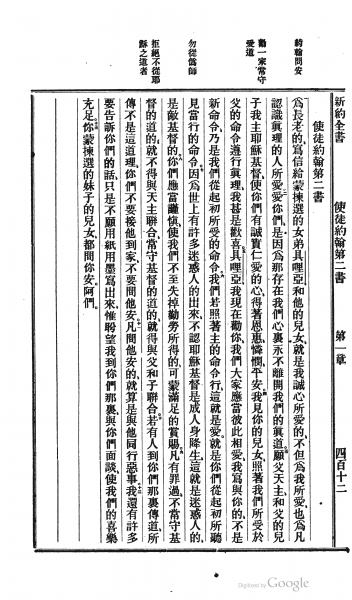 新約全書 使徒約翰第二書 第一章 四百十二
約翰問安
勸一家常守
愛道
勿從僞師
拒絕不從耶
穌之道者
使徒約翰第二書
爲長老的、寫信給蒙揀選的女弟具哩亞和他的兒女、就是我誠心所愛的、不但爲我所愛、也爲凡
認識眞理的人所愛、愛你們是因爲那存在我們心裏永不離開我們的眞道、願父天主和父的兒
子我主耶穌基督、使你們有誠實仁愛的心、得著恩惠憐憫平安、我見你的兒女照著我們所受於
父的命令遵行眞理、我甚是歡喜、具哩亞、我現在勸你、我們大家應當彼此相愛、我寫與你的、不是
新命令、乃是我們從起初所受的命令、我們若照著主的命令行、這就是愛、就是你們從起初所聽
見當行的命令、因爲世上有許多迷惑人的出來、不認耶穌基督是成人身降生、這就是迷惑人的、
是敵基督的、你們應當謹愼、使我們不至失掉勸勞所得的、可蒙滿足的賞賜、凡有罪過、不常守基
督的道的、就不得與天主聯合、常守基督的道的、就得與父和子聯合、若有人到你們那裏傳道、所
傳不是這道理、你們不要接他到家、不要問他安、凡問他安的、就算是與他同行惡事、我還有許多
要告訴你們的話、只是不願用紙用墨寫出來、惟盼望我到你們那裏、與你們面談、使我們的喜樂
充足、你蒙揀選的妹子的兒女、都問你安、阿們、
Digitized by Google